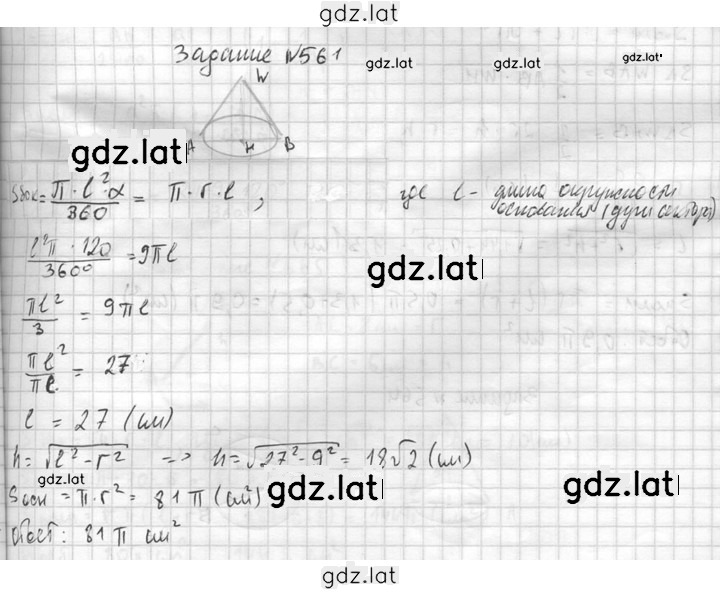 gdz.lat
Задание №561
gdz.lat
gdz.lat
W
A H B
gdz.lat
Sбок = π · l² · α / 360 = π · r · l , где l - длина окружности
основания (дуги сектора)
l²π · 120 / 360° = 9πl
gdz.lat
πl² / 3 = 9πl
πl² / πl = 27
l = 27 (см)
h = √l² - r² => h = √27² - 9² = 18√2 (см)
gdz.lat
gdz.lat
gdz.lat
Sосн = π · r² = 81π (см²)
Ответ: 81π см²
gdz.lat